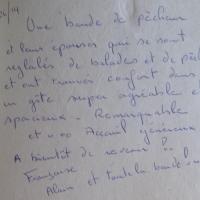 06/14
Une bande de pêcheurs
et leurs épouses qui se sont
régalés de balades et de pêche
et ont trouvés confort dans
un gîte super agréable et
spacieux. Remarquable
et Accueil généreux
A bientôt de revenir ?!
Françoise
Alain et toute la bande